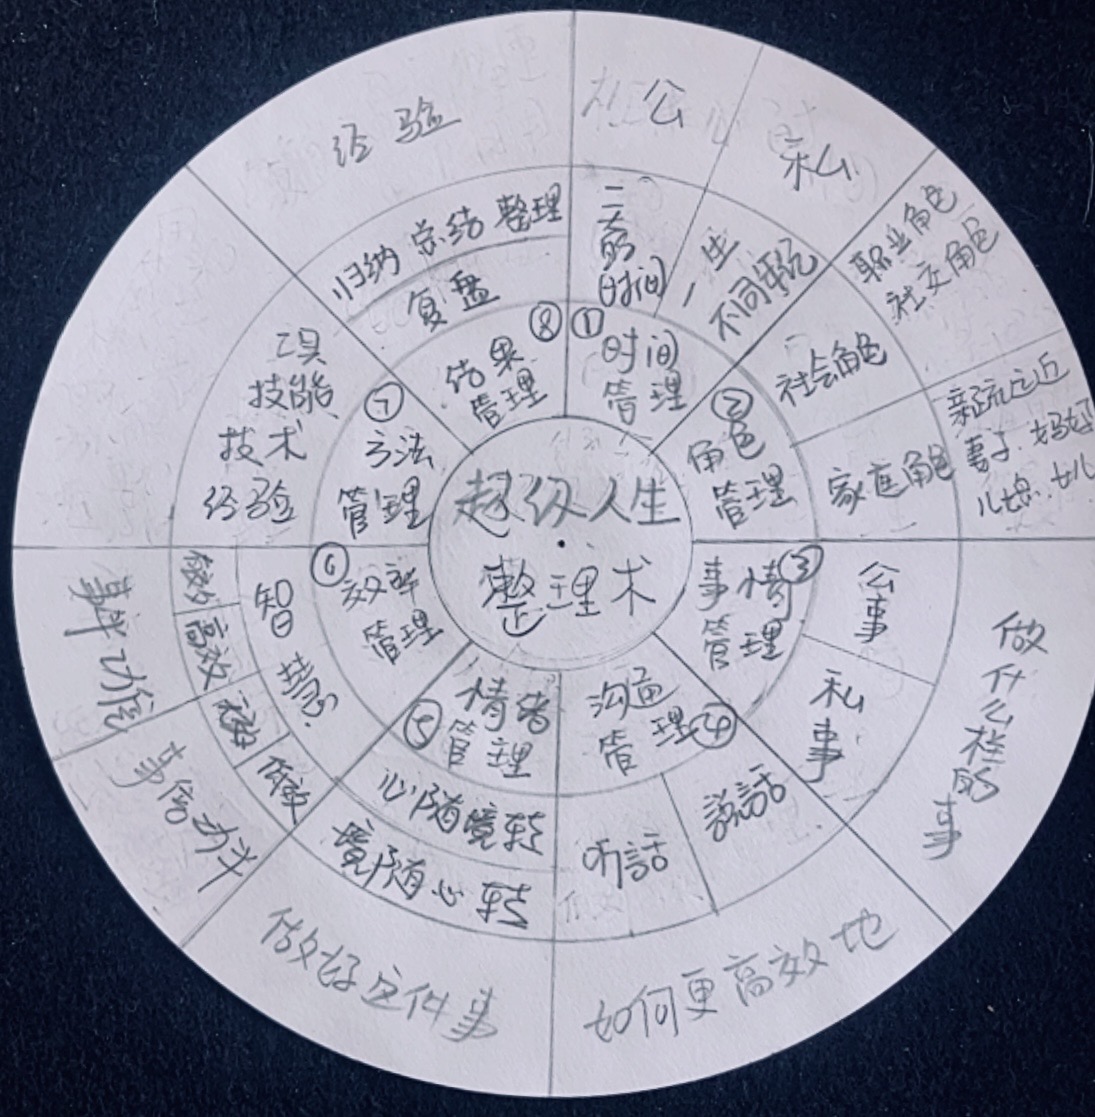 超级人生
整理术
①
时间
管理
二奇
时间
一生
不同
公
私
②
角色
管理
社会角色
家庭角色
职业角色
社交角色
亲疏远近
妻子·妈妈
儿媳·女儿
③
事情
管理
公
事
私
事
做
什
么
样
的
事
④
沟通
管理
说話
听話
如何更高效地
⑤
情绪
管理
心随境转
境随心转
做好这件事
⑥
效率
管理
智
慧
有效
高效
无效
低效
事半功倍
事倍功半
⑦
方法
管理
工具
技能
技术
经验
⑧
结果
管理
复盘
归纳 总结 整理
经验